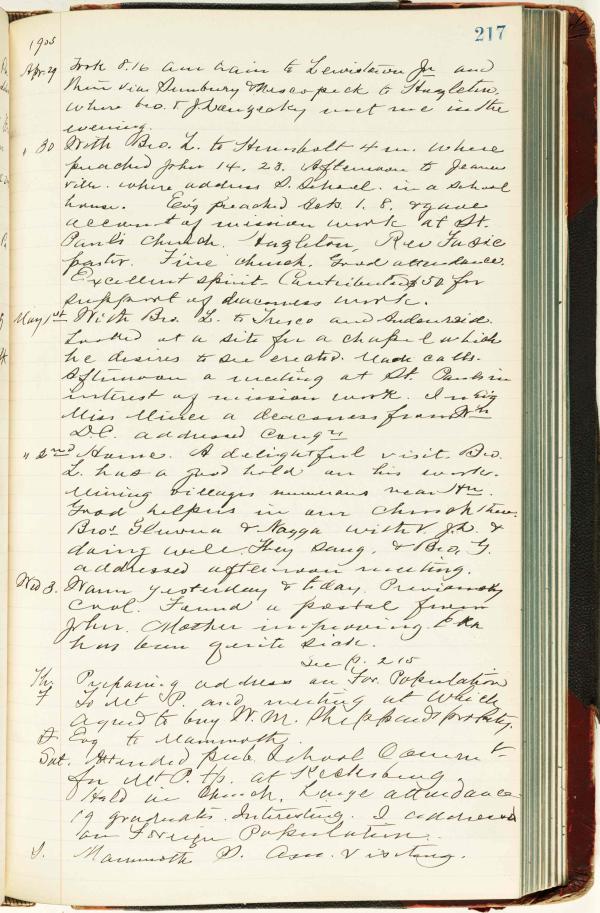 217
1905
Apr. 29 Took 8.16 am train to Lewistown Jn and
then via Sunbury & Nescopeck to Hazleton.
where bro. V J met me in the
evening.
" 30 With Bro. L. to 4 m. where
preached John 14. 23. Afternoon to Jeanes
ville. where address S. School. in a school
house. Evg preached Acts. 1. 8. & gave
account of mission work at St.
Paul's Church. Hazleton, Rev
pastor. Fine church. Good attendance.
Excellent spirit. Contributed $50 for
support of deaconess work.
May 1st With Bro. L. to Tresco and
Looked at a site for a chapel which
he desires to see erected. Made calls.
Afternoon a meeting at St. Pauls in
interest of mission work. In Evg
Miss Miner a deaconess from Wn
D.C. addressed Congn
" 2nd Home. A delightful visit. Bro.
L. has a good hold on his work.
Mining villages numerous near Hn.
Good helpers in our church there.
Bros & Nagga with V. J. L. &
doing well. They sang, & Bro. G.
addressed afternoon meeting.
Wed 3. Warm yesterday & today. Previously
cool. Found a postal from
John. Mother improving.
has been quite sick.
See p. 215
Th Preparing address on For. Population
F To Mt P. and meeting at which
agreed to buy W. M. Sheppards property.
Evg to Mammoth.
Sat. Attended pub. School Commt
for Mt P. Tp. at Kecksburg.
Held in Church. Large attendance
19 graduates. Interesting. I addressed
on Foreign Population.
S. Mammoth S. Asn. visiting.